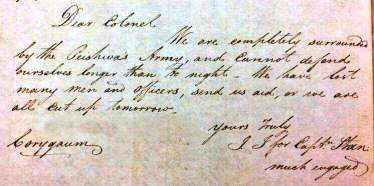 Dear Colonel
We are completely surrounded
by the Peishwa's Army, and cannot defend
ourselves longer than to night - We have lost
many men and officers, send us aid, or we are
all cut up tomorrow.
yours truly
J J for Captn Stan
Corygaum
much engaged